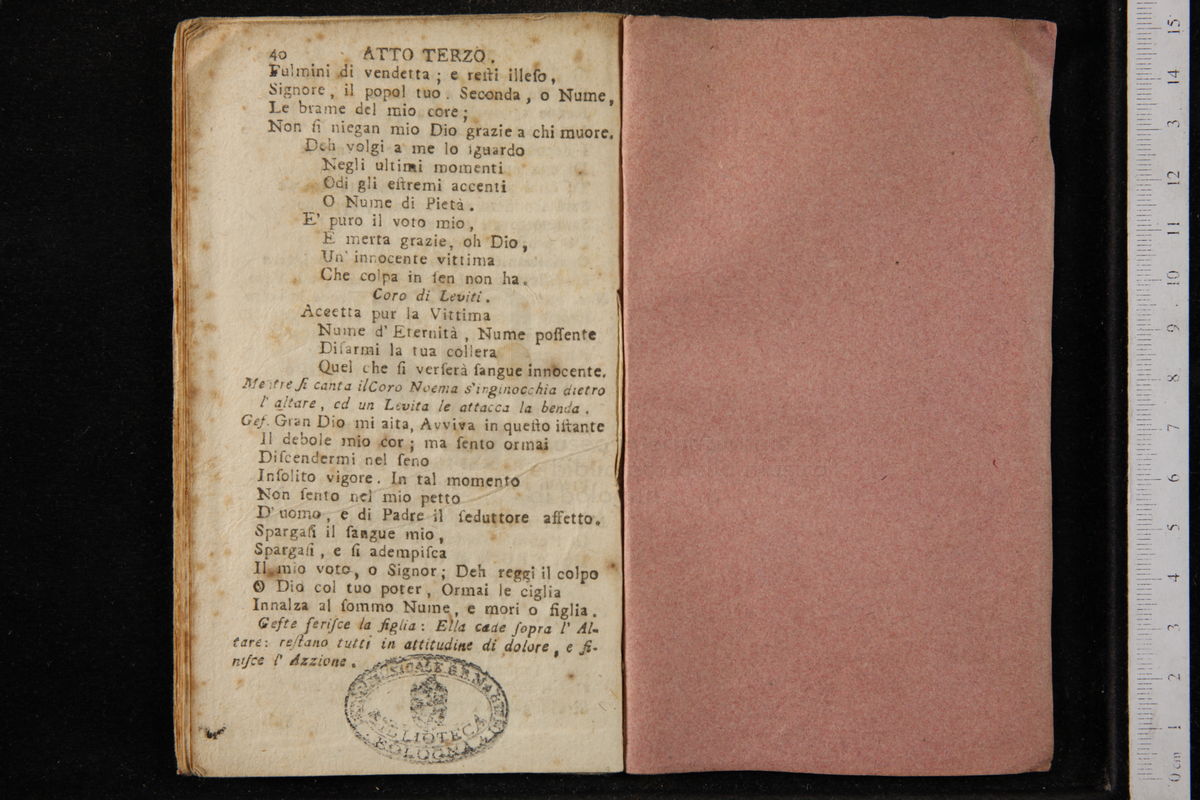 40 ATTO TERZO.
Fulmini di vendetta; e reſti illeſo,
Signore, il popol tuo. Seconda, o Nume,
Le brame del mio core;
Non ſi niegan mio Dio grazie a chi muore.
Deh volgi a me lo ſguardo
Negli ultimi momenti
Odi gli eſtremi accenti
O Nume di Pietà.
E' puro il voto mio,
E merta grazie, oh Dio,
Un' innocente vittima
Che colpa in ſen non ha.
Coro di Leviti.
Accetta pur la Vittima
Nume d' Eternità, Nume poſſente
Diſarmi la tua collera
Quel che ſi verſerà ſangue innocente.
Mentre ſi canta il Coro Noema s'inginocchia dietro
l' altare, ed un Levita le attacca la benda.
Gef. Gran Dio mi aita, Avviva in queſto iſtante
Il debole mio cor; ma ſento ormai
Diſcendermi nel ſeno
Inſolito vigore. In tal momento
Non ſento nel mio petto
D' uomo, e di Padre il ſeduttore affetto.
Spargaſi il ſangue mio,
Spargaſi, e ſi adempiſca
Il mio voto, o Signor; Deh reggi il colpo
O Dio col tuo poter, Ormai le ciglia
Innalza al ſommo Nume, e mori o figlia.
Gefte feriſce la figlia: Ella cade ſopra l' Al-
tare: reſtano tutti in attitudine di dolore, e fi-
niſce l' Azzione.
MUSICALE
BIBLIOTECA
BOLOGNA
15
14
3
12
11
10
9
8
7
6
5
4
3
2
1
0 cm